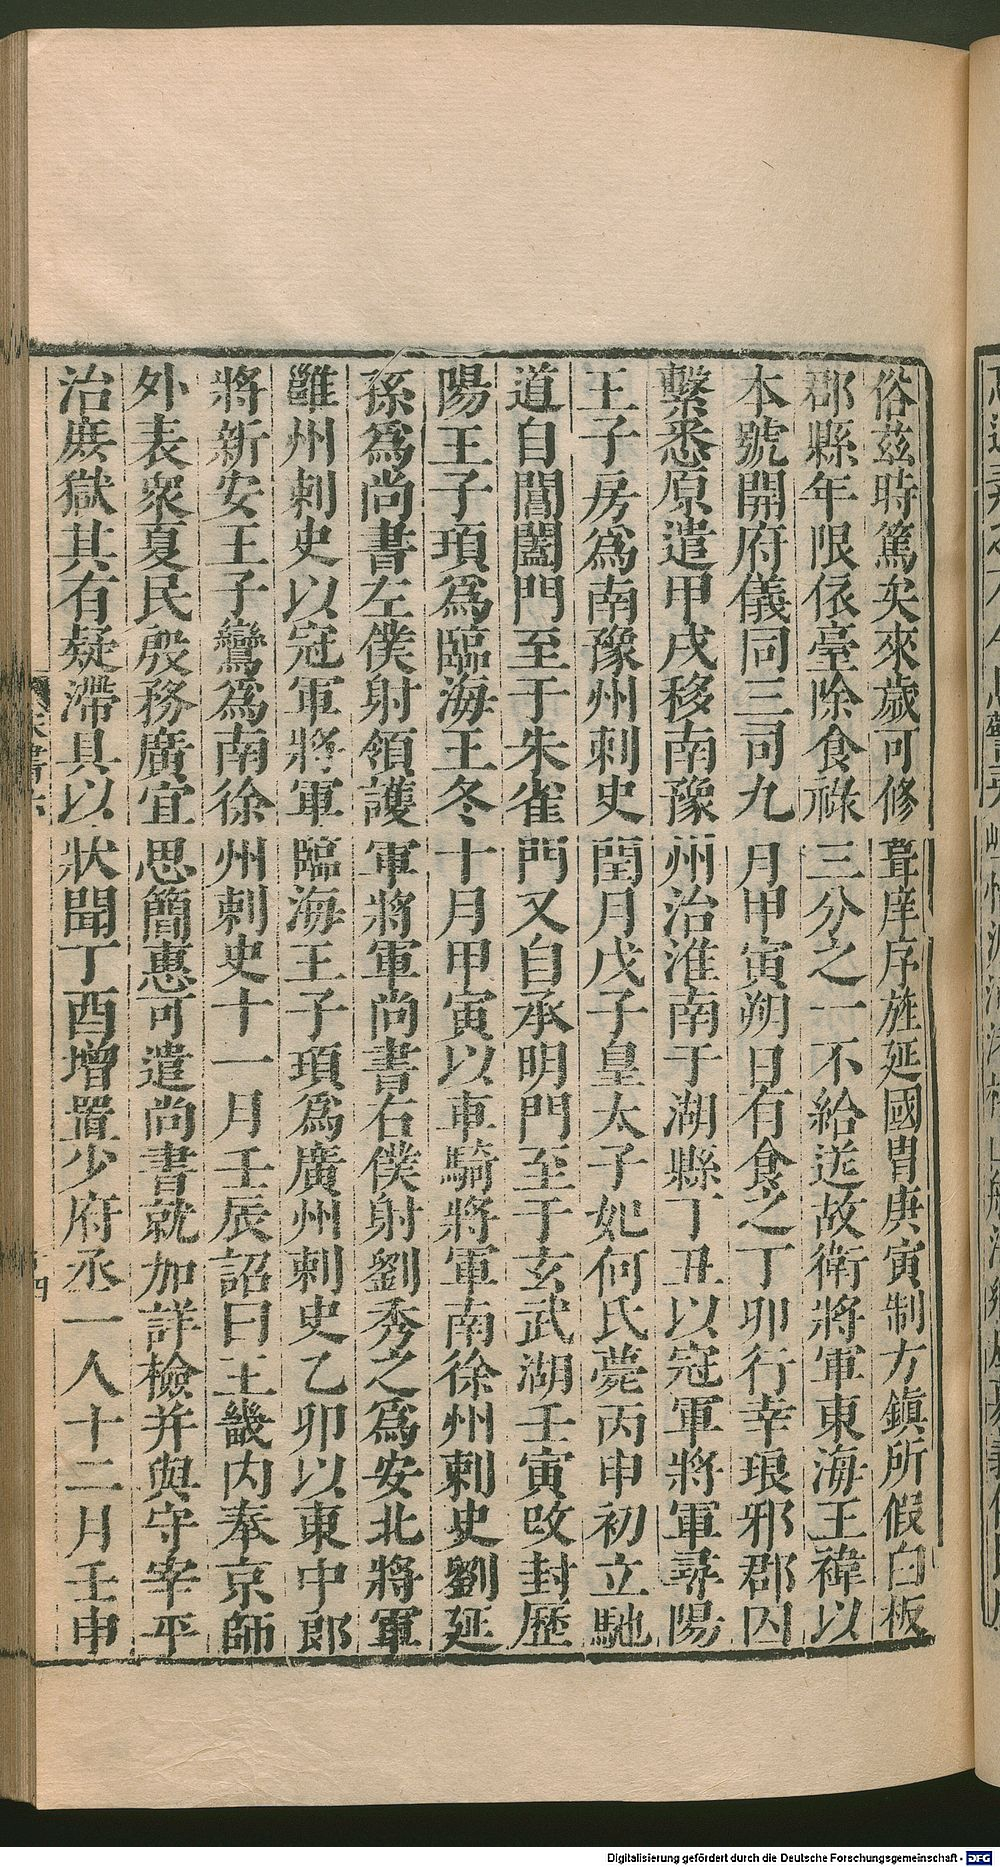 俗茲時篤矣來歲可修葺庠序旌延國胄庚寅制方鎮所假白板
郡縣年限依臺除食祿三分之一不給送故衛將軍東海王褘以
本號開府儀同三司九月甲寅朔日有食之丁卯行幸琅邪郡囚
繫悉原遣甲戌移南豫州治淮南于湖縣丁丑以冠軍將軍尋陽
王子房爲南豫州刺史閏月戊子皇太子妃何氏薨丙申初立馳
道自閶闔門至于朱雀門又自承明門至于玄武湖壬寅改封歷
陽王子頊爲臨海王冬十月甲寅以車騎將軍南徐州刺史劉延
孫爲尚書左僕射領護軍將軍尚書右僕射劉秀之爲安北將軍
雝州刺史以冠軍將軍臨海王子頊爲廣州刺史乙卯以東中郎
將新安王子鸞爲南徐州刺史十一月壬辰詔曰王畿內奉京師
外表衆夏民殷務廣宜思簡惠可遣尚書就加詳檢并與守宰平
治庶獄其有疑滯具以狀聞丁酉增置少府丞一人十二月壬申
Digitalisierung gefördert durch die Deutsche Forschungsgemeinschaft - DFG